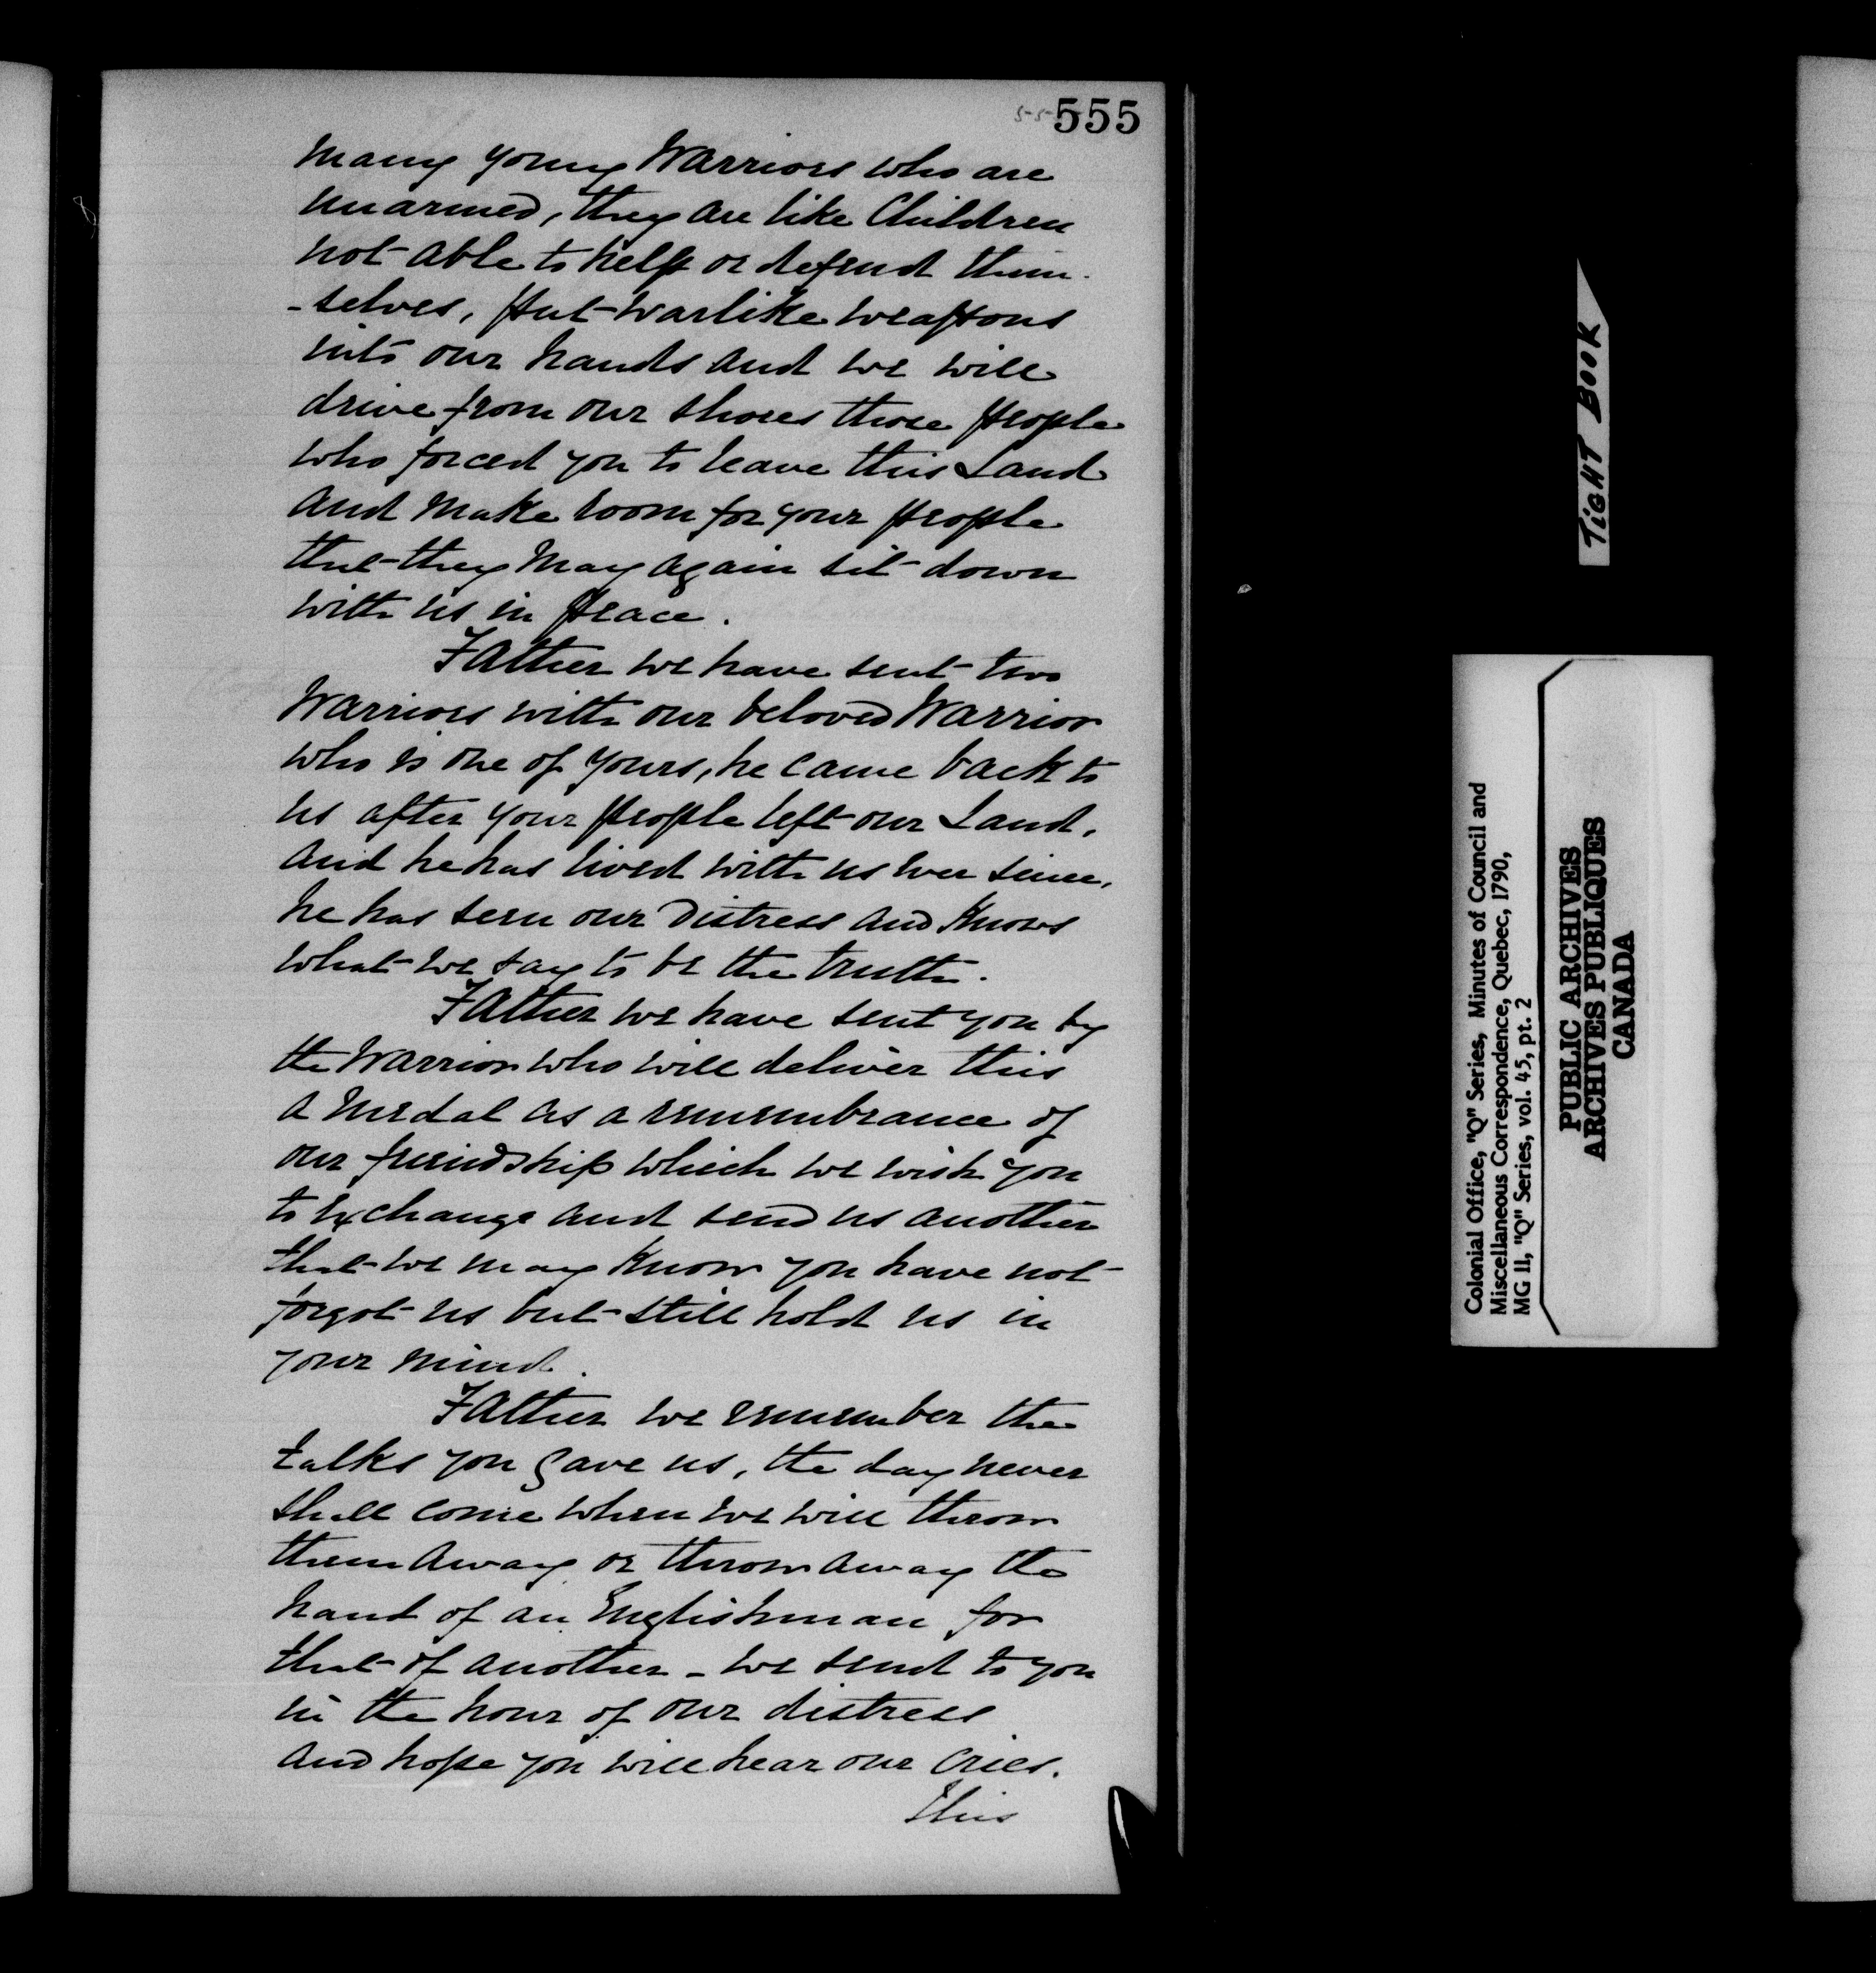 555
many young Warriors who are
unarmed, they are like Children
not able to help or defend them-
-selves, put warlike weapons
into our hands and we will
drive from our shores those people
who forced you to leave this Land
and make room for your people
that they may again sit down
with us in peace.
Father we have sent two
Warriors with our beloved Warrior
who is one of yours, he came back to
us after your people left our Land,
and he has lived with us ever since,
he has seen our distress and knows
what we say to be the truth.
Father we have sent you by
the Warrior who will deliver this
a medal as a remembrance of
our friendship which we wish you
to exchange and send us another
that we may know you have not
forgot us but still hold us in
your mind.
Father we remember the
talks you gave us, the day never
shall come when we will throw
them away or throw away the
hand of an Englishman for
that of another - we send to you
in the hour of our distress
and hope you will hear our cries.
This
TIGHT BOOK
Colonial Office, "Q" Series, Minutes of Council and
Miscellaneous Correspondence, Quebec, 1790,
MG 11, "Q" Series, vol. 45, pt. 2
PUBLIC ARCHIVES
ARCHIVES PUBLIQUES
CANADA